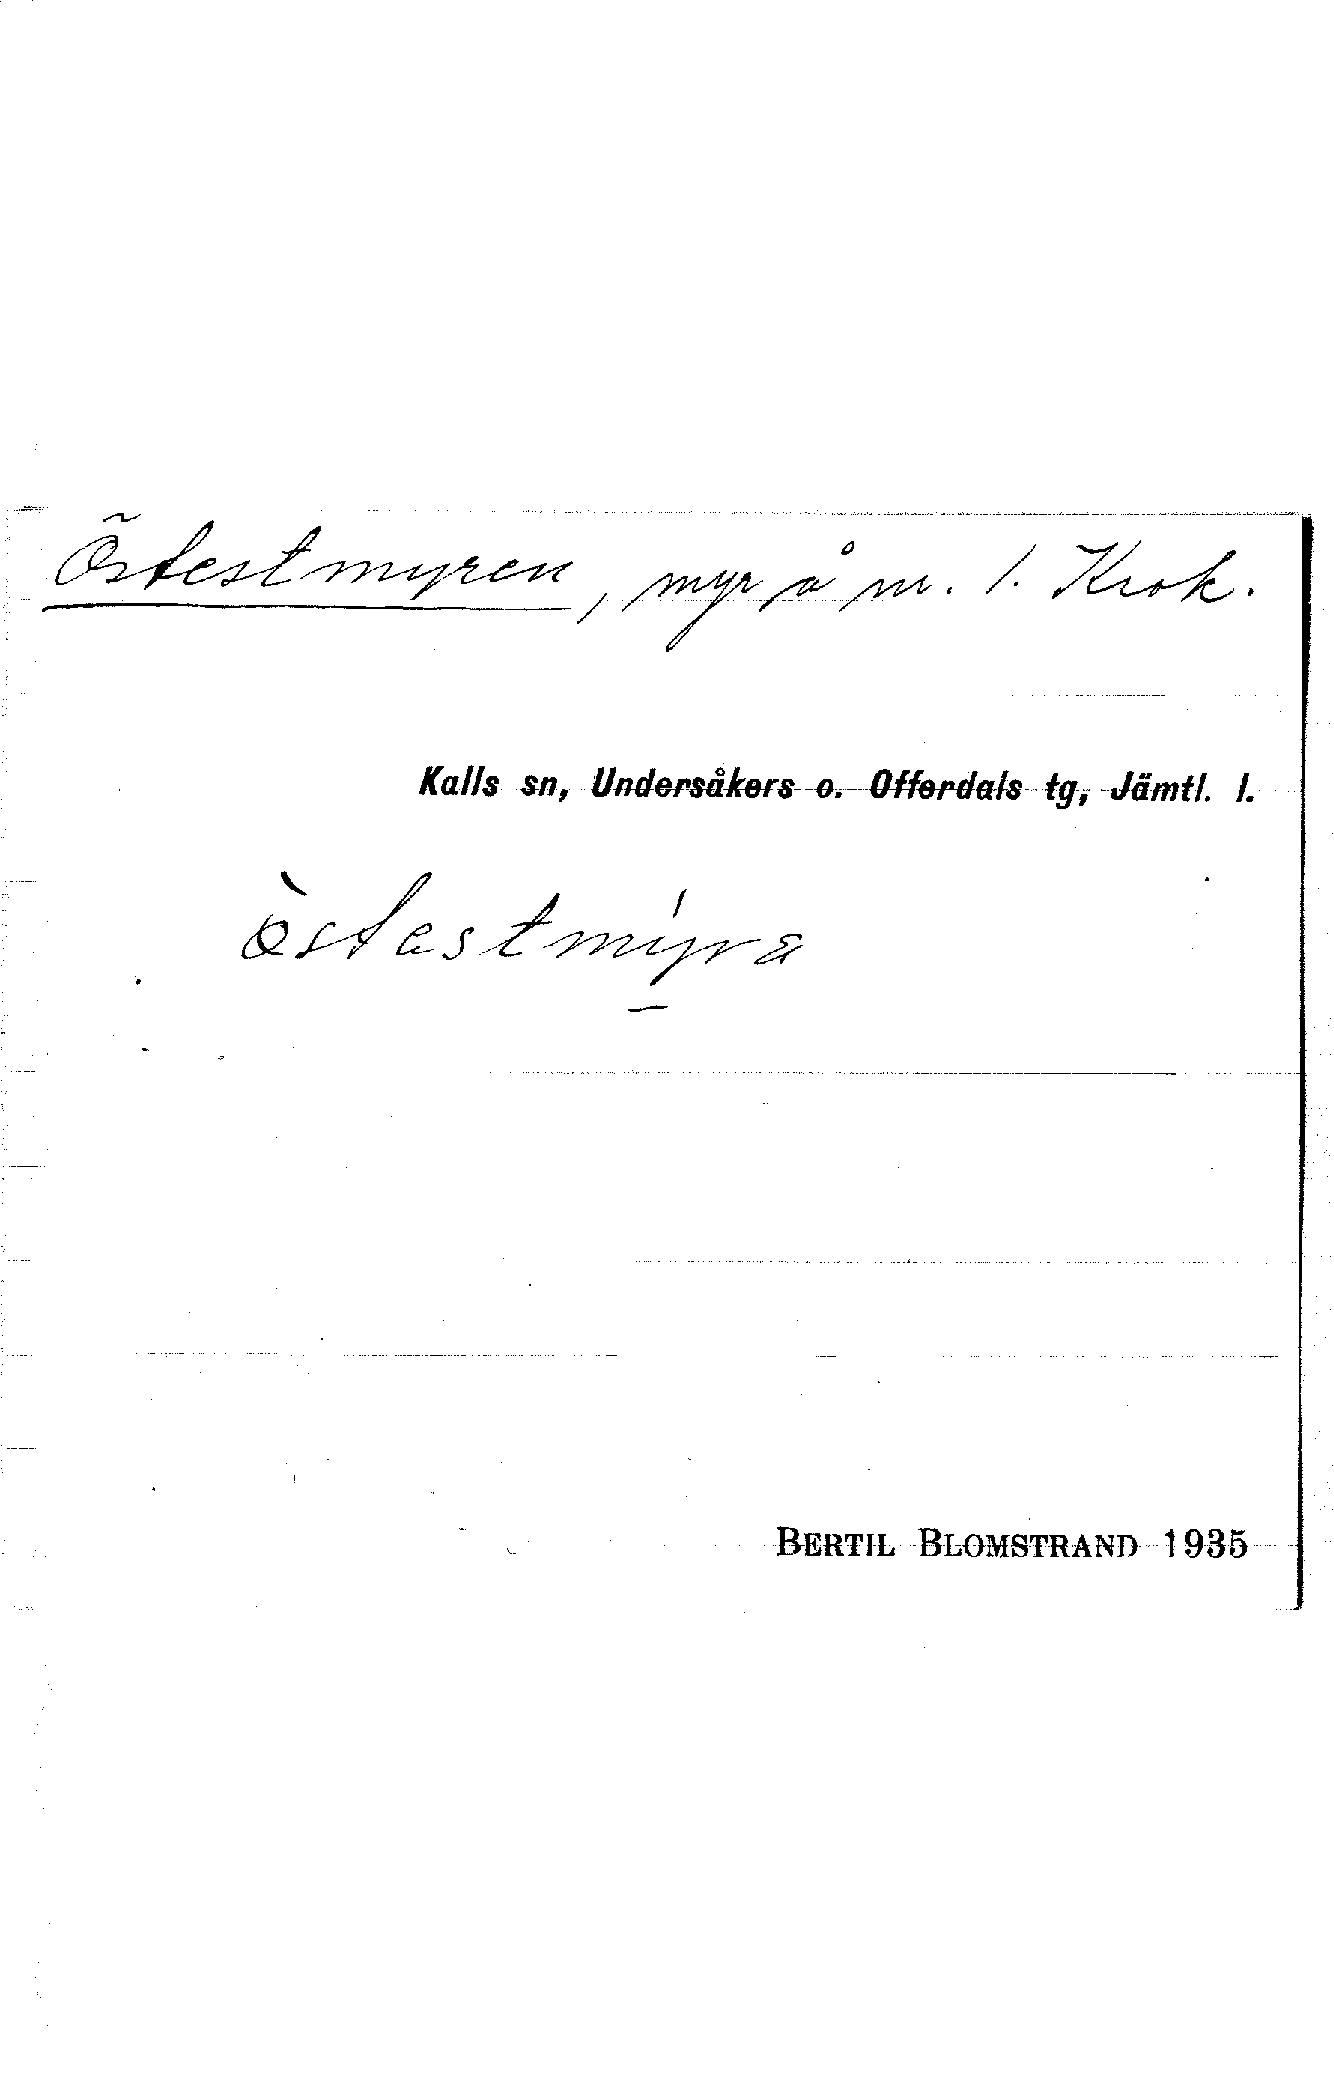 Östestmyren, myr å nr. 1. Krok.
Kalls sn, Undersåkers o. Offerdals tg, Jämtl. l.
òstestmýra
BERTIL BLOMSTRAND 1935